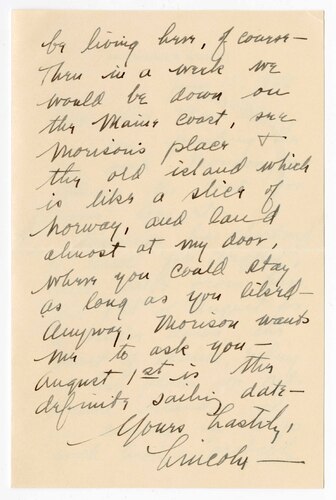 be living here, of course —
Then in a week we
would be down on
the Maine Coast, see
Morison's place &
the old island which
is like a slice of
Norway, and land
almost at my door,
where you could stay
as long as you liked —
Anyway, Morison wants
me to ask you —
August 1st is the
definite sailing date —
Yours hastily,
Lincoln —